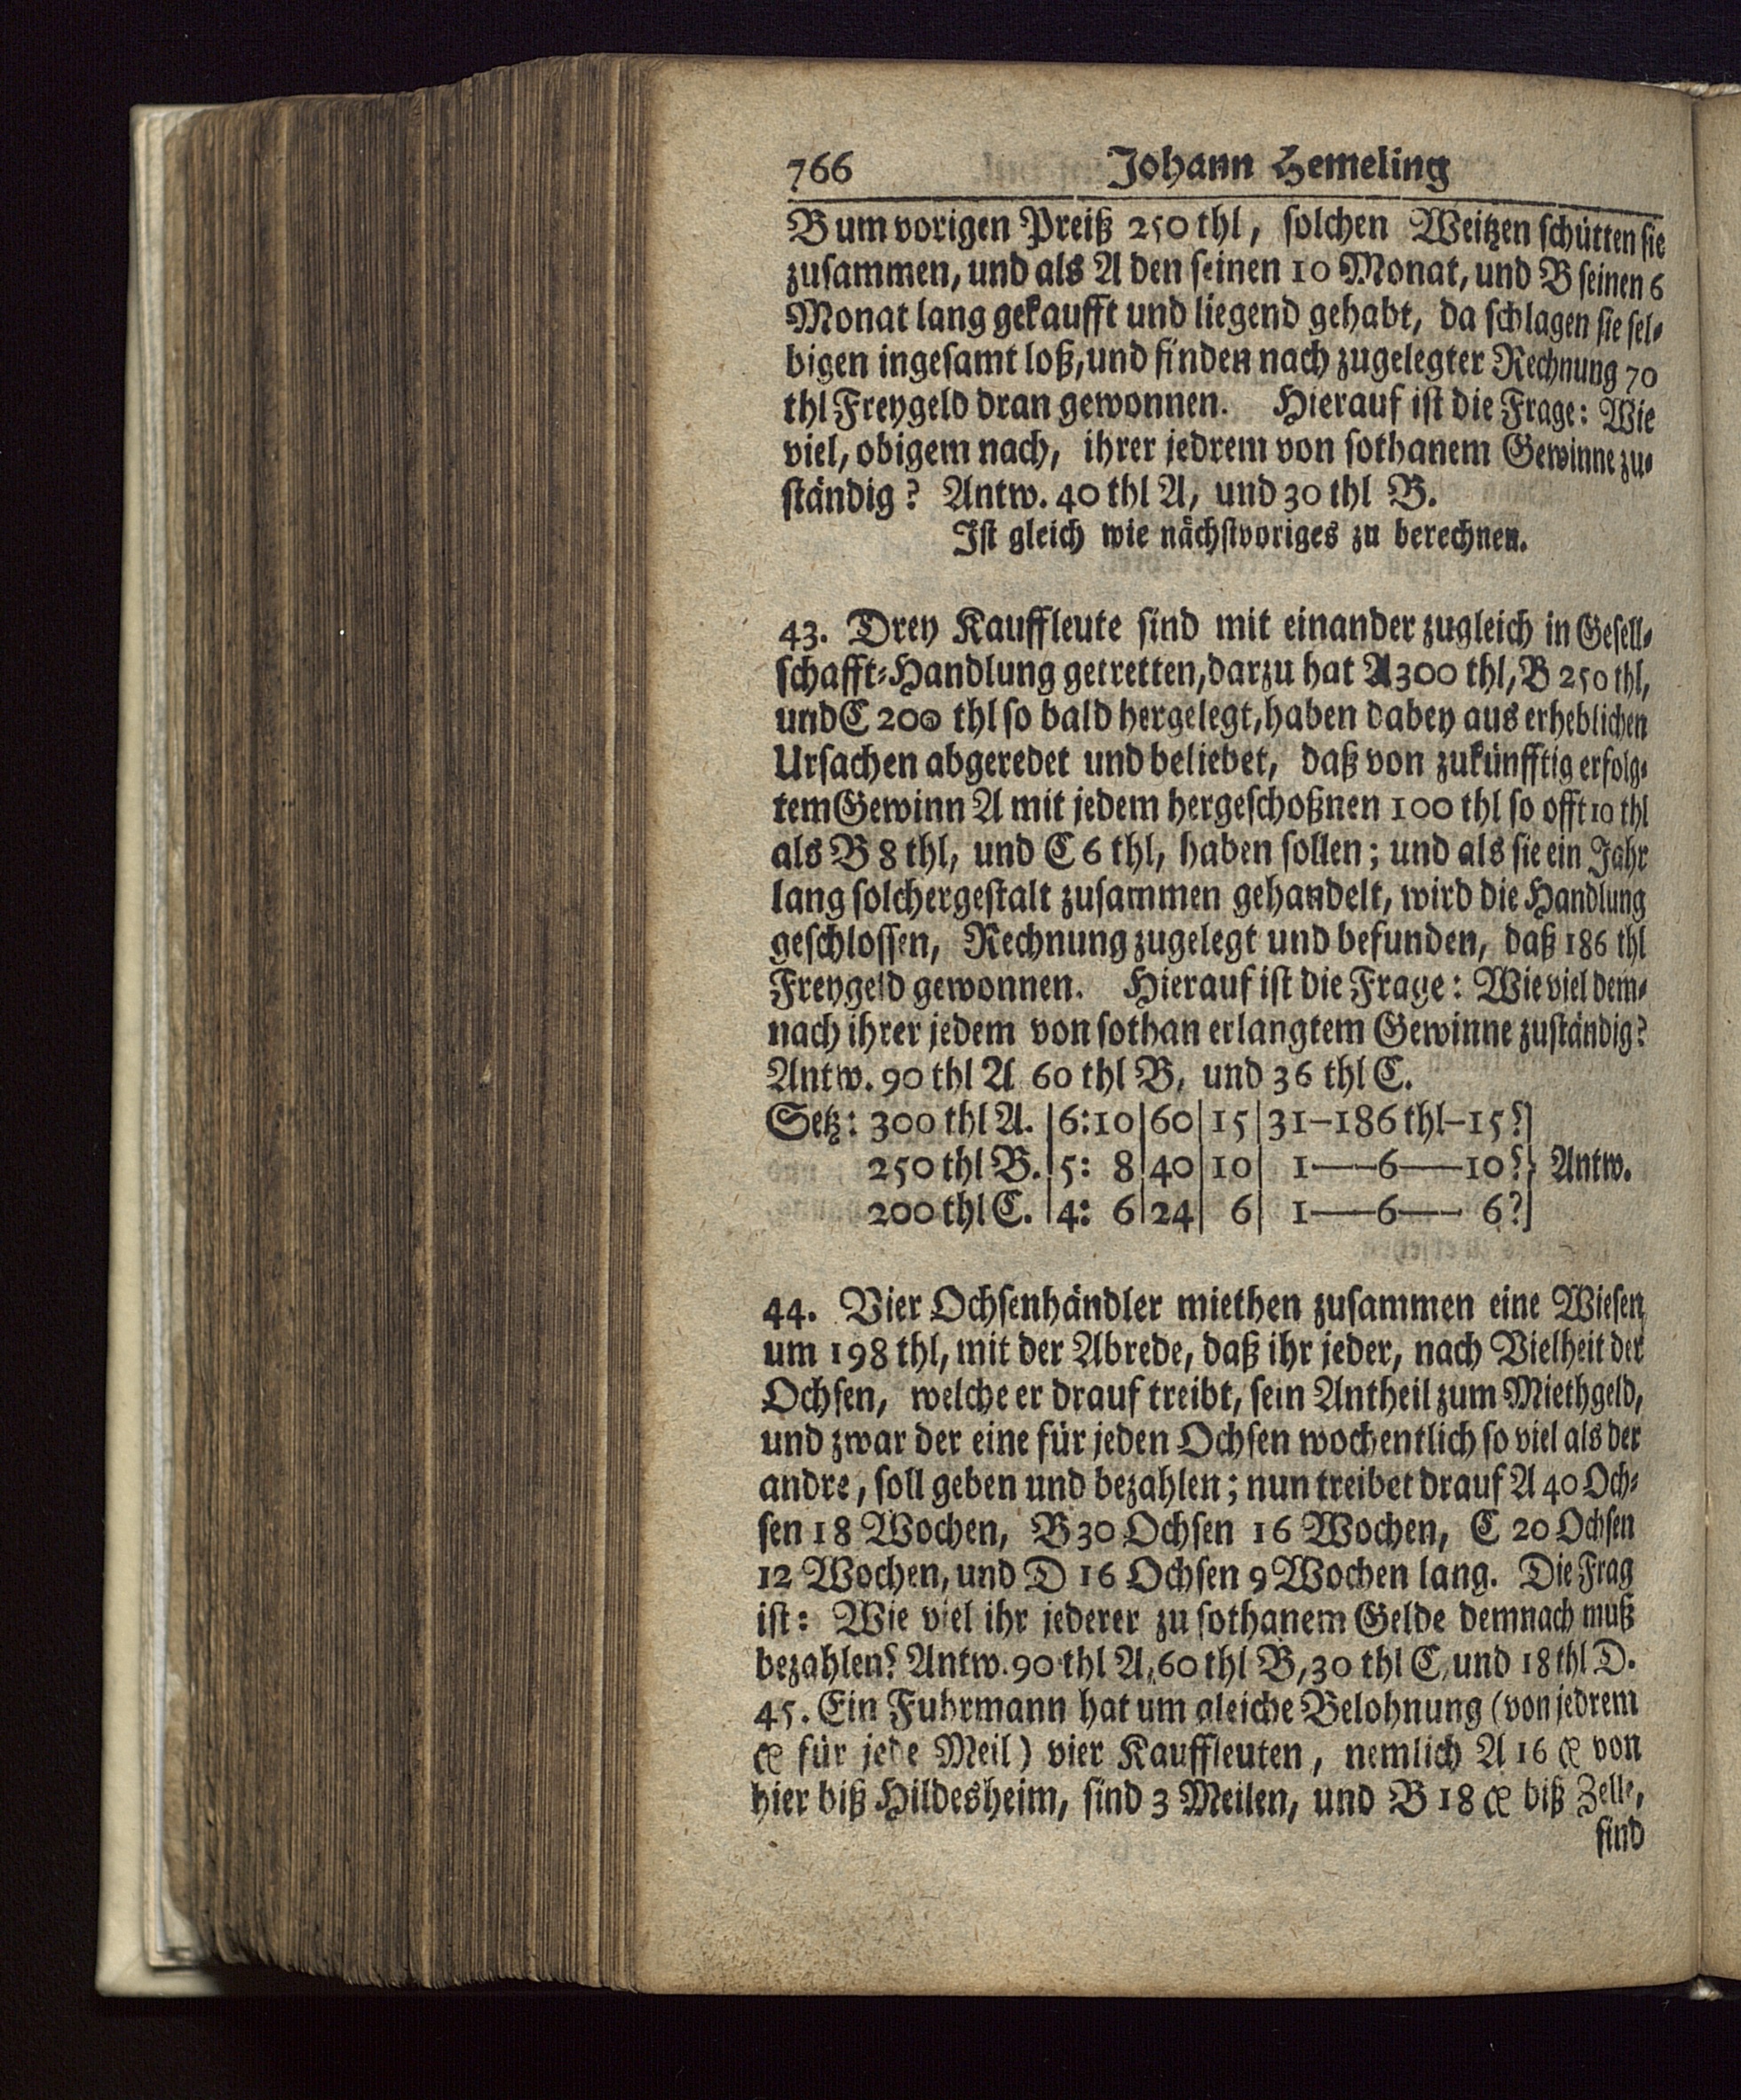 766 Johann Hemeling
B um vorigen Preiß 250 thl, solchen Weitzen schütten sie
zusammen, und als A den seinen 10 Monat, und B seinen 6
Monat lang gekaufft und liegend gehabt, da schlagen sie sel-
bigen ingesamt loß, und finden nach zugelegter Rechnung 70
thl Freygeld dran gewonnen. Hierauf ist die Frage: Wie
viel, obigem nach, ihrer jedrem von sothanem Gewinne zu-
ständig? Antw. 40 thl A, und 30 thl B.
Ist gleich wie nächstvoriges zu berechnen.
43. Drey Kauffleute sind mit einander zugleich in Gesell-
schafft-Handlung getretten, darzu hat A 300 thl, B 250 thl,
und C 200 thl so bald hergelegt, haben dabey aus erheblichen
Ursachen abgeredet und beliebet, daß von zukünfftig erfolg-
tem Gewinn A mit jedem hergeschoßnen 100 thl so offt 10 thl
als B 8 thl, und C 6 thl, haben sollen; und als sie ein Jahr
lang solchergestalt zusammen gehandelt, wird die Handlung
geschlossen, Rechnung zugelegt und befunden, daß 186 thl
Freygeld gewonnen. Hierauf ist die Frage: Wie viel dem-
nach ihrer jedem von sothan erlangtem Gewinne zuständig?
Antw. 90 thl A 60 thl B, und 36 thl C.
Setz: 300 thl A. |6:10|60|15|31-186 thl-15?}
250 thl B. |5: 8|40|10| 1—6—10?} Antw.
200 thl C. |4: 6|24| 6| 1—6— 6?}
44. Vier Ochsenhändler miethen zusammen eine Wiesen
um 198 thl, mit der Abrede, daß ihr jeder, nach Vielheit der
Ochsen, welche er drauf treibt, sein Antheil zum Miethgeld,
und zwar der eine für jeden Ochsen wochentlich so viel als der
andre, soll geben und bezahlen; nun treibet drauf A 40 Och-
sen 18 Wochen, B 30 Ochsen 16 Wochen, C 20 Ochsen
12 Wochen, und D 16 Ochsen 9 Wochen lang. Die Frag
ist: Wie viel ihr jederer zu sothanem Gelde demnach muß
bezahlen? Antw. 90 thl A, 60 thl B, 30 thl C, und 18 thl D.
45. Ein Fuhrmann hat um gleiche Belohnung (von jedrem
für jede Meil) vier Kauffleuten, nemlich A 16 von
hier biß Hildesheim, sind 3 Meilen, und B 18 biß Zelle,
sind